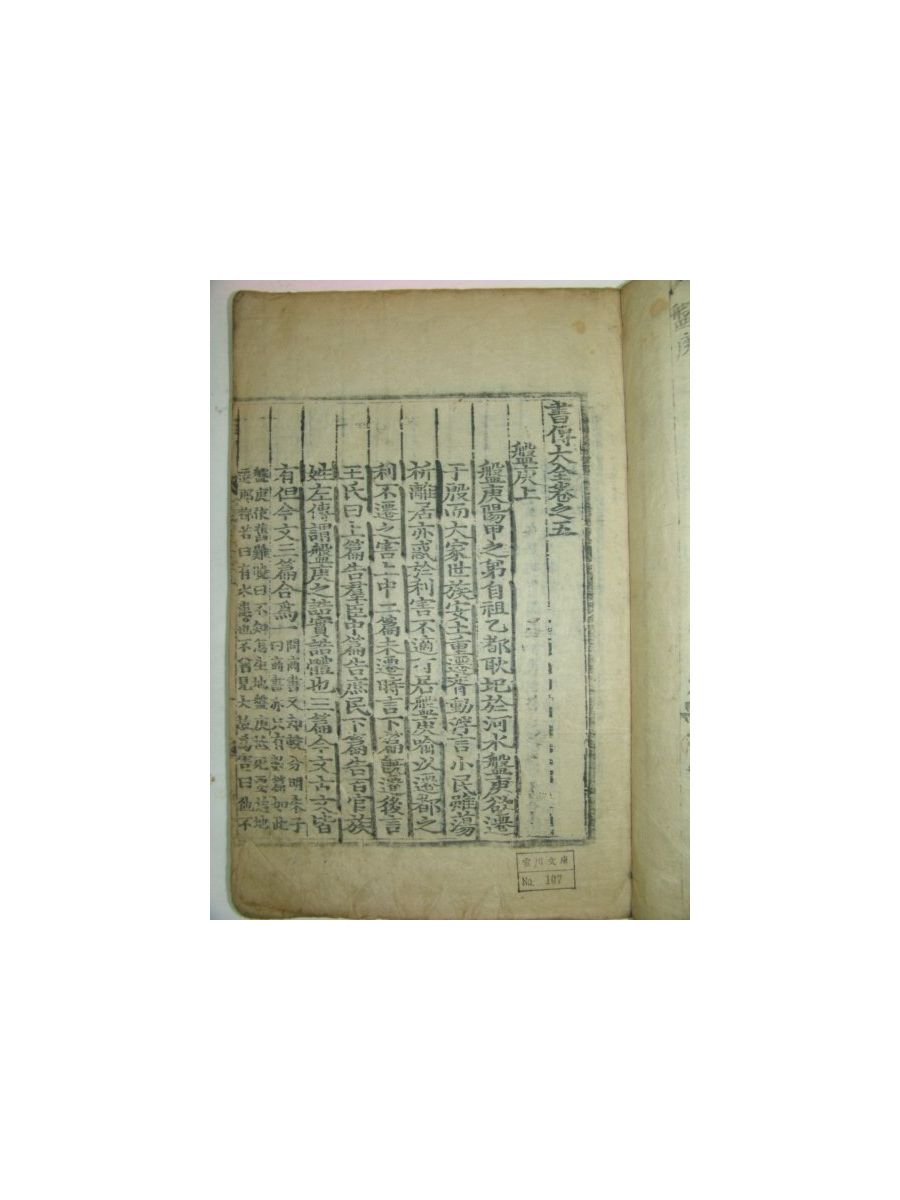 書傳大全卷之五
盤庚上
盤庚陽甲之弟自祖乙都耿圯於河水盤庚欲遷
于殷而大家世族安土重遷胥動浮言小民雖蕩
析離居亦惑於利害不適有居盤庚喻以遷都之
利不遷之害上中二篇未遷時言下篇旣遷後言
王氏曰上篇告羣臣中篇告庶民下篇告百官族
姓左傳謂盤庚之誥實誥體也三篇今文古文皆
有但今文三篇合爲一
問商書又却較分明朱子
曰商亦只有數篇如此
盤庚依舊難曉曰不知怎生地盤庚
地
若曰有水害也不曾見大
害曰他不
盤庚
文庫
No. 107